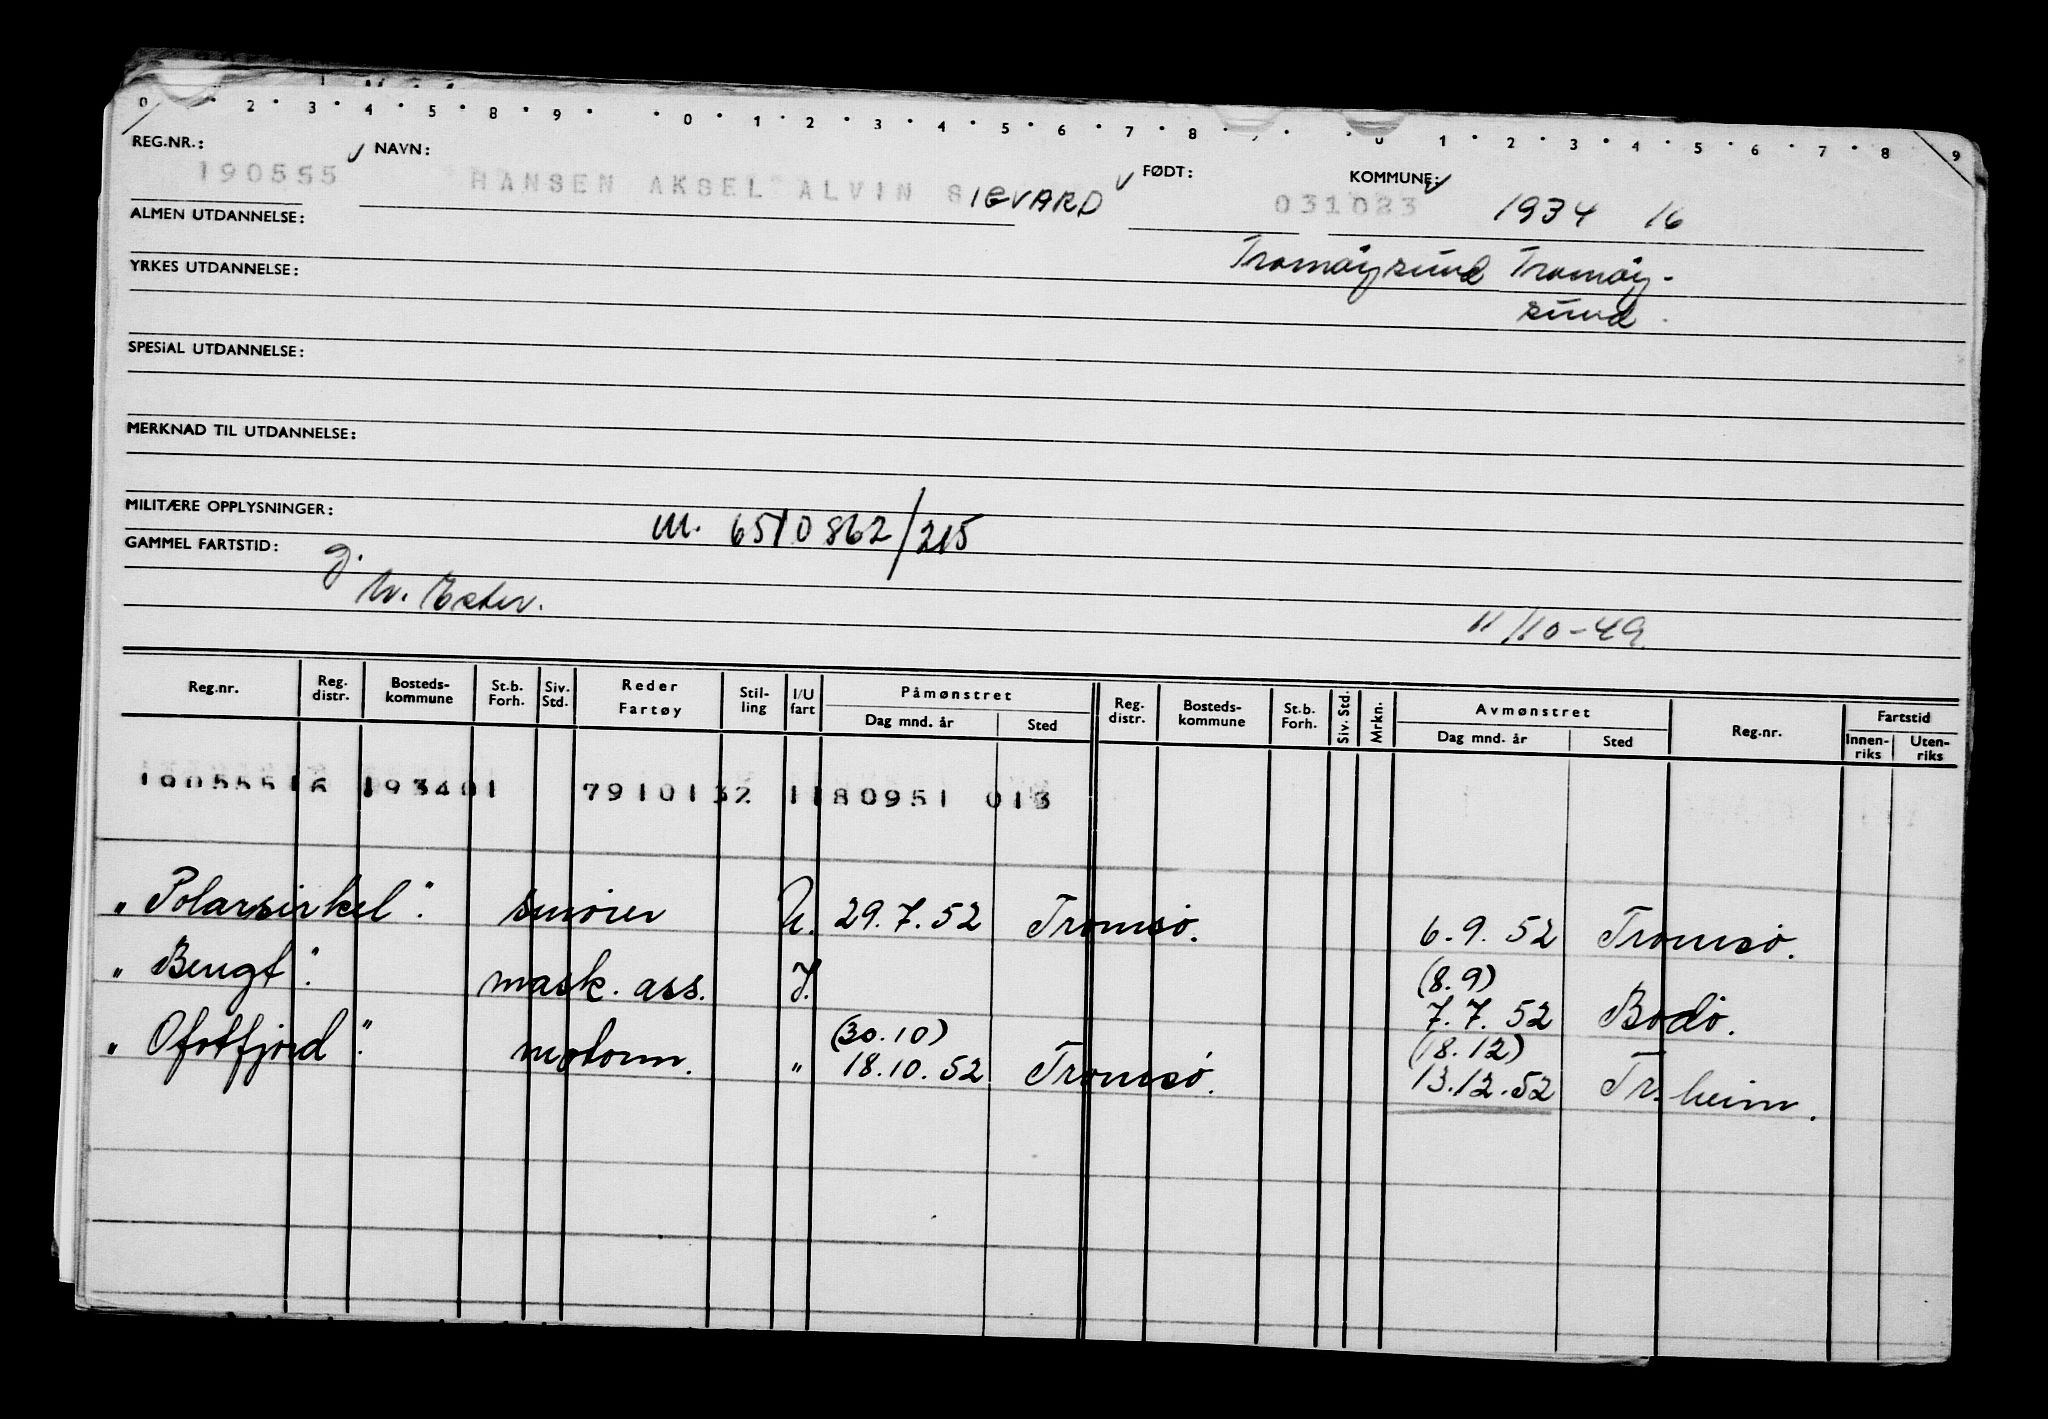 0 2 3 4 5 8 9 0 1 2 3 4 5 6 7 8 0 1 2 3 4 5 6 7 8 9
REG.NR.: NAVN: FØDT: KOMMUNE:
190555 HANSEN AKSEL ALVIN SIGVARD 031023 1934 16
ALMEN UTDANNELSE:
Tromøysund Tromøy-
YRKES UTDANNELSE:
sund.
SPESIAL UTDANNELSE:
MERKNAD TIL UTDANNELSE:
MILITÆRE OPPLYSNINGER: M. 6510862/215
GAMMEL FARTSTID: g.
11/10-49
Reg.nr. Reg. distr. Bosteds-kommune St.b. Forh. Siv. Std. Reder Fartøy Stil-ling I/U fart Påmønstret Dag mnd. år Sted Reg. distr. Bosteds-kommune St.b. Forh. Siv. Std. Mrkn. Avmønstret Dag mnd. år Sted Reg.nr. Fartstid Innen-riks Uten-riks
190555 16 193401 7910132 1180951 013
"Polarsirkel". smører U. 29.7.52 Tromsø. 6.9.52 Tromsø.
(8.9)
"Bengt". mask. ass. I. 7.7.52 Bodø.
(30.10) (18.12)
"Ofotfjord". motorm. " 18.10.52 Tromsø. 13.12.52 Tr.heim.